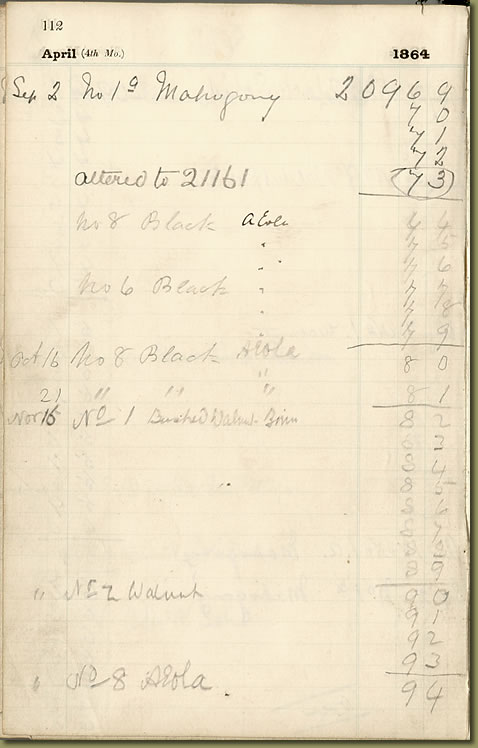 112
April (4th Mo.) 1864
Sep 2 No 1a Mahogony 2 0 9 6 9
7 0
7 1
7 2
altered to 21161 7 3
No 8 Black AEola 7 4
" 7 5
" 7 6
No 6 Black " 7 7
" 7 8
" 7 9
Oct 16 No 8 Black AEola 8 0
21 " " " 8 1
Nov 15 No 1 Walnut 8 2
3
8 4
8 5
8 6
8 7
8 8
8 9
" No 2 Walnut 9 0
9 1
9 2
9 3
" No 8 AEola 9 4